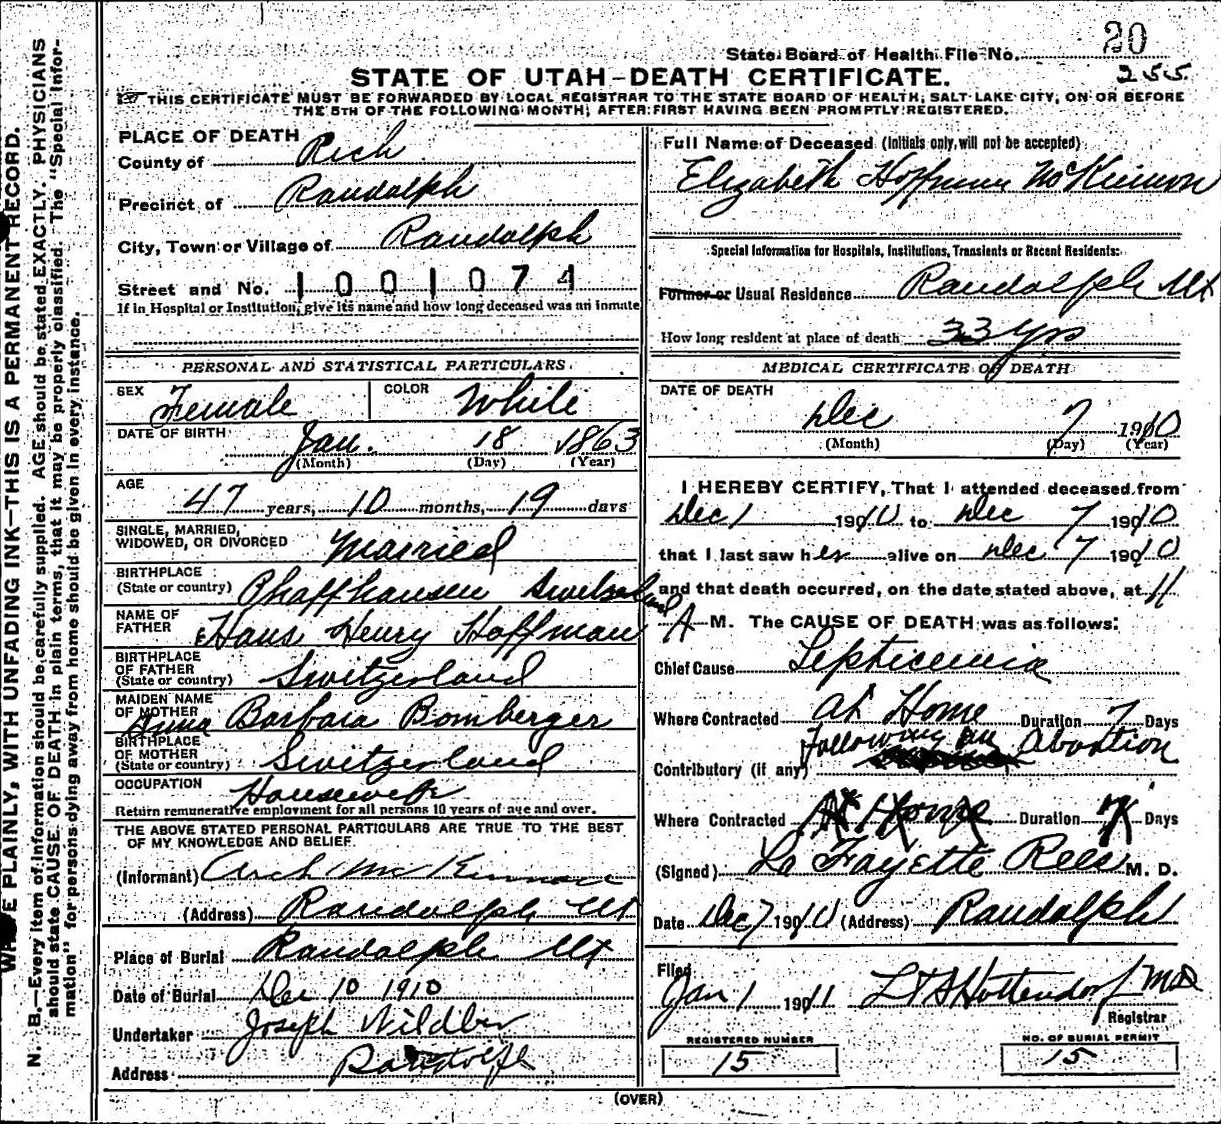 20
State Board of Health File No. 255
STATE OF UTAH—DEATH CERTIFICATE.
THIS CERTIFICATE MUST BE FORWARDED BY LOCAL REGISTRAR TO THE STATE BOARD OF HEALTH, SALT LAKE CITY, ON OR BEFORE
THE 5TH OF THE FOLLOWING MONTH, AFTER FIRST HAVING BEEN PROMPTLY REGISTERED.
PLAINLY, WITH UNFADING INK—THIS IS A PERMANENT RECORD.
N. B.—Every item of information should be carefully supplied. AGE should be stated EXACTLY. PHYSICIANS
should state CAUSE OF DEATH in plain terms, that it may be properly classified. The "Special Infor-
mation" for persons dying away from home should be given in every instance.
PLACE OF DEATH
County of Rich
Precinct of Randolph
City, Town or Village of Randolph
Street and No. 1001074
If in Hospital or Institution, give its name and how long deceased was an inmate
PERSONAL AND STATISTICAL PARTICULARS
SEX Female COLOR White
DATE OF BIRTH Jan. 18 1863
(Month) (Day) (Year)
AGE
47 years, 10 months, 19 days
SINGLE, MARRIED,
WIDOWED, OR DIVORCED Married
BIRTHPLACE
(State or country) Phaffhausen Switzerland
NAME OF
FATHER Hans Henry Hoffman
BIRTHPLACE
OF FATHER
(State or country) Switzerland
MAIDEN NAME
OF MOTHER Anna Barbara Bomberger
BIRTHPLACE
OF MOTHER
(State or country) Switzerland
OCCUPATION Housewife
Return remunerative employment for all persons 10 years of age and over.
THE ABOVE STATED PERSONAL PARTICULARS ARE TRUE TO THE BEST
OF MY KNOWLEDGE AND BELIEF.
(Informant) Arch McKinnon
(Address) Randolph Ut
Place of Burial Randolph Ut
Date of Burial Dec 10 1910
Undertaker Joseph
Address Randolph
Full Name of Deceased (Initials only, will not be accepted)
Elizabeth Hoffman McKinnon
Special Information for Hospitals, Institutions, Transients or Recent Residents:
Former or Usual Residence Randolph Ut
How long resident at place of death 33 Yrs
MEDICAL CERTIFICATE OF DEATH
DATE OF DEATH
Dec 7 1910
(Month) (Day) (Year)
I HEREBY CERTIFY, That I attended deceased from
Dec 1 1910 to Dec 7 1910
that I last saw her alive on Dec 7 1910
and that death occurred, on the date stated above, at 11
A M. The CAUSE OF DEATH was as follows:
Chief Cause Septicemia
Where Contracted at Home Duration 7 Days
Following an Abortion
Contributory (if any)
Where Contracted At Home Duration 7 Days
(Signed) La Fayette Rees M. D.
Date Dec 7 1910 (Address) Randolph
Filed
Jan 1 1911 Hottendorf MD
Registrar
REGISTERED NUMBER
15
NO. OF BURIAL PERMIT
15
(OVER)